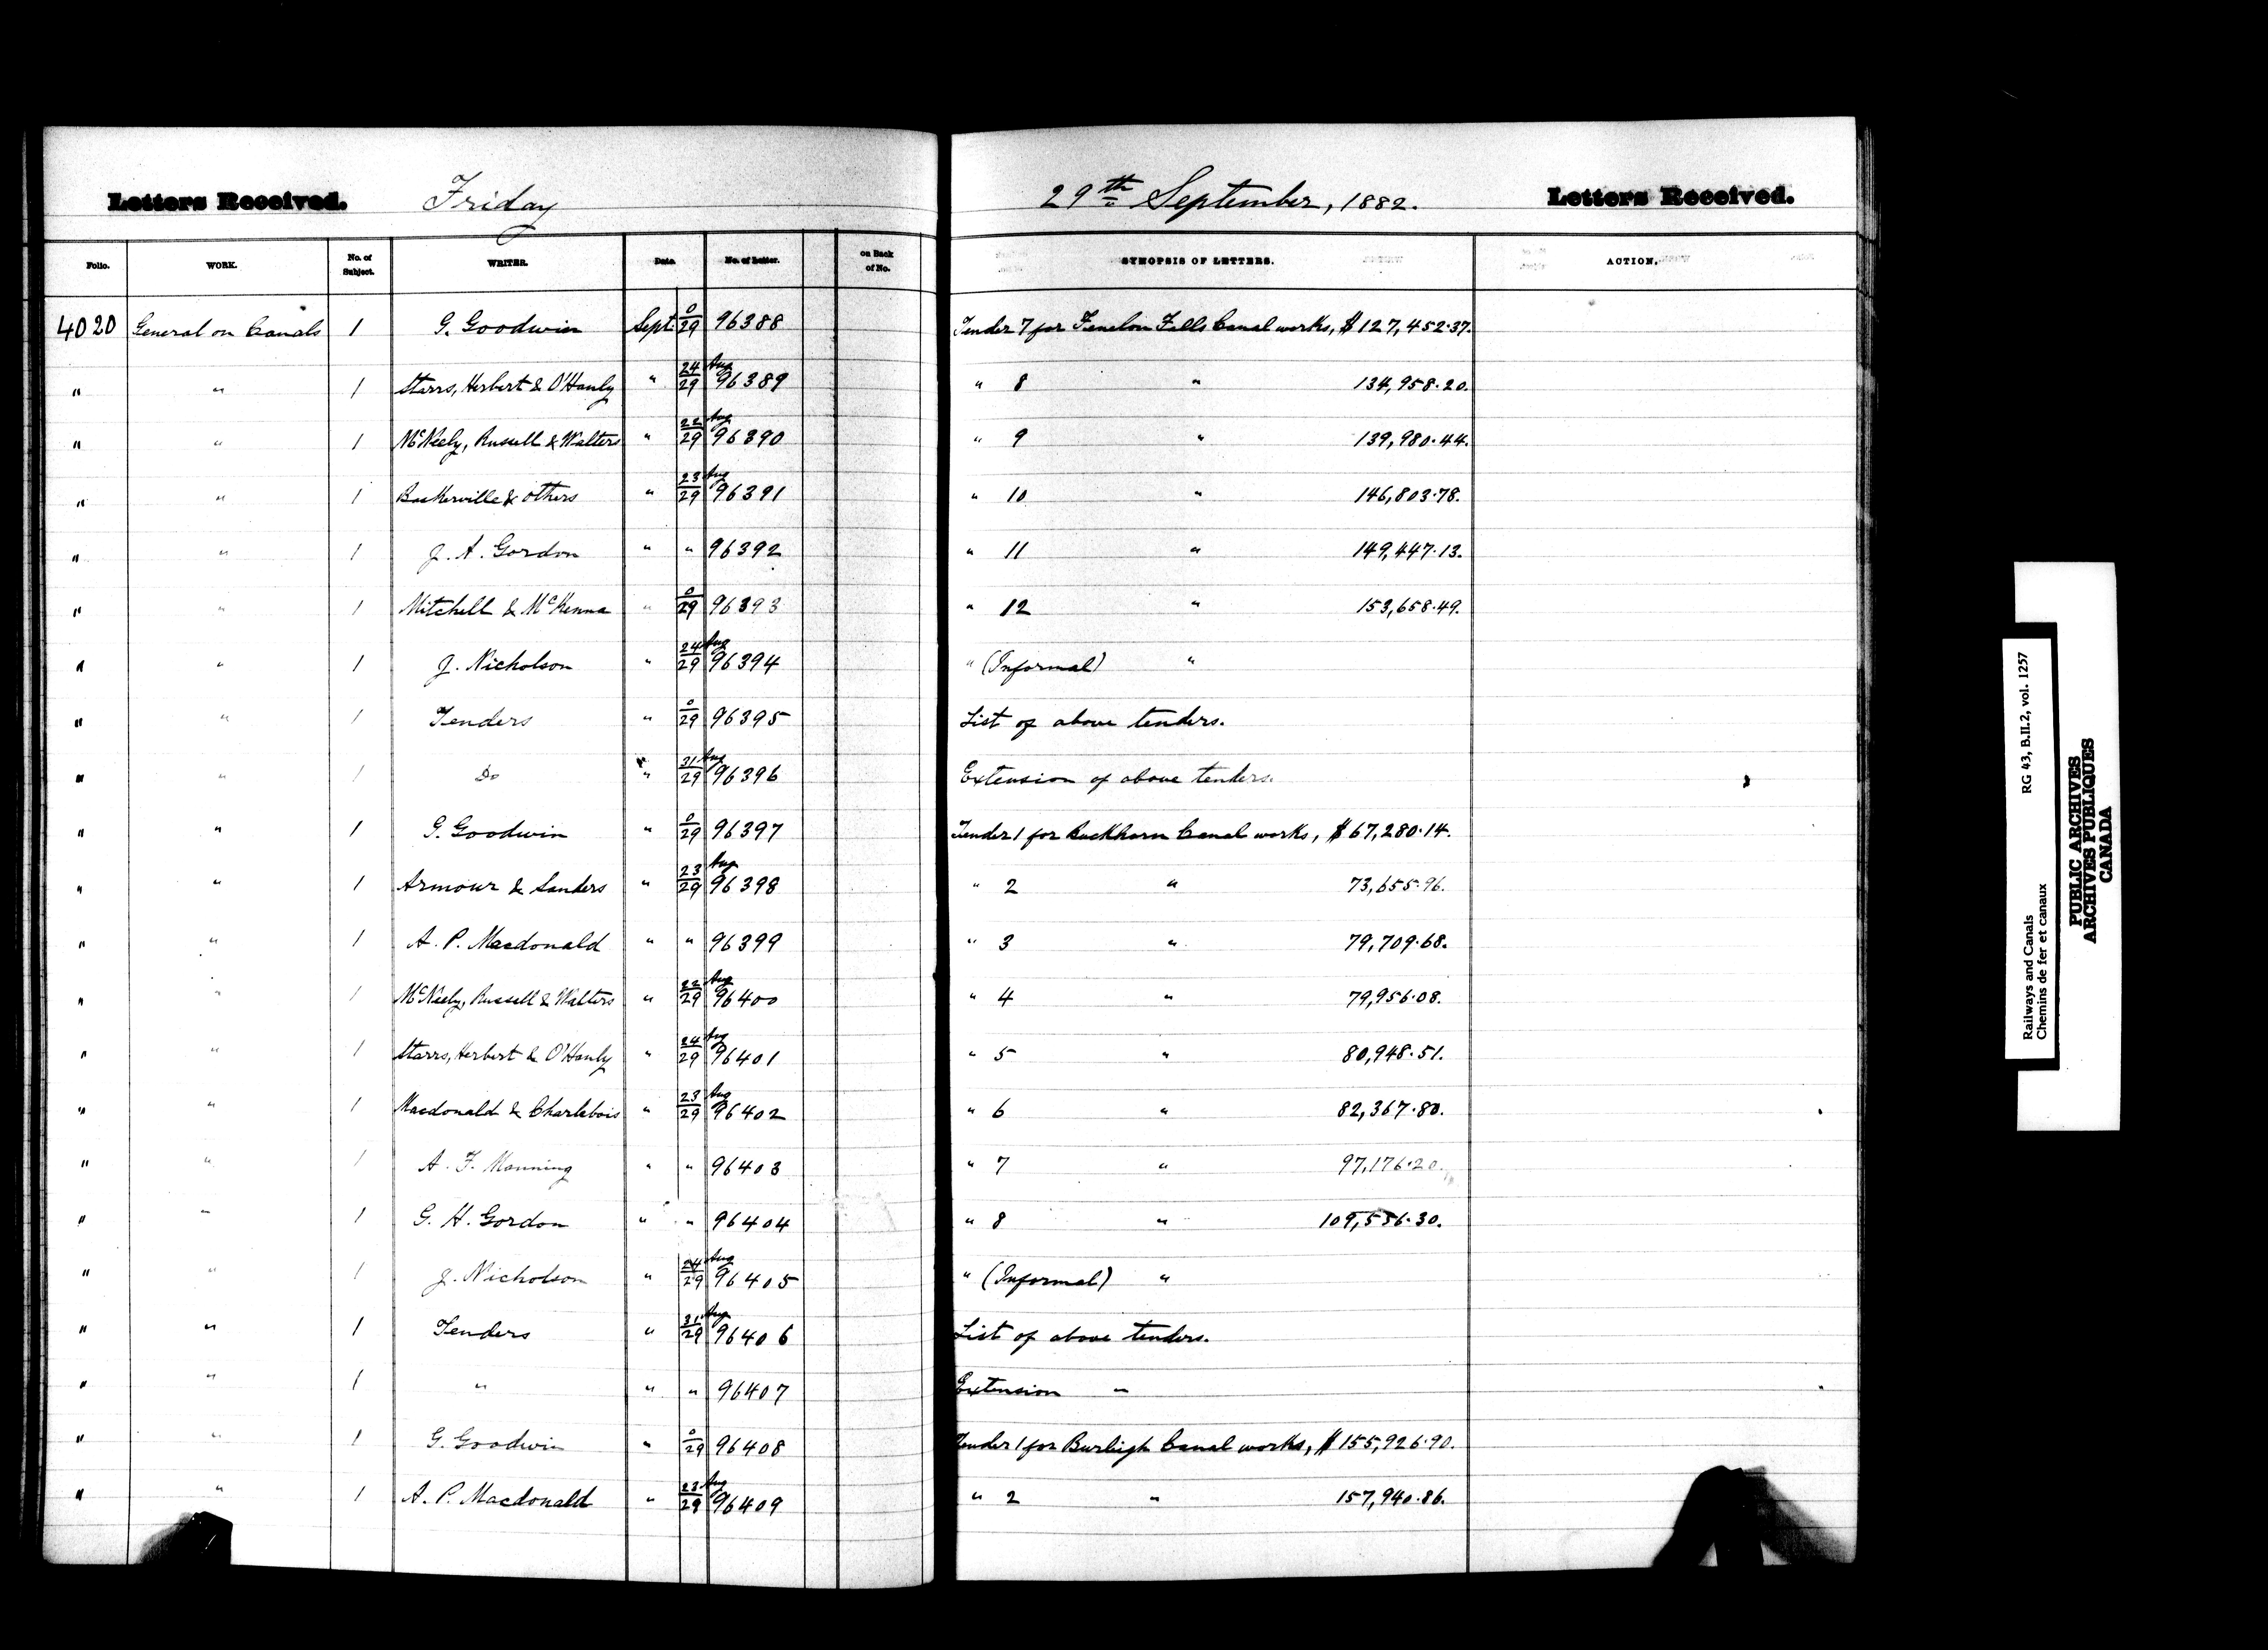 Letters Received. Friday 29th September, 1882. Letters Received.
Folio. WORK. No. of Subject. WRITER. Date. No. of Letter. on Back of No. SYNOPSIS OF LETTERS. ACTION.
4020 General on Canals 1 G. Goodwin Sept. 0/29 96388 Tender 7 for Fenelon Falls Canal works, $127,452.37.
" " 1 Starrs, Herbert & O'Hanly " 24/29 Aug 96389 " 8 " 134,958.20.
" " 1 McNeely, Russell & Walters " 22/29 Aug 96390 " 9 " 139,980.44.
" " 1 Baskerville & others " 23/29 Aug 96391 " 10 " 146,803.78.
" " 1 J. A. Gordon " " 96392 " 11 " 149,447.13.
" " 1 Mitchell & McKenna " 0/29 96393 " 12 " 153,658.49.
" " 1 J. Nicholson " 24/29 Aug 96394 " (Informal) "
" " 1 Tenders " 0/29 96395 List of above tenders.
" " 1 Do " 31/29 Aug 96396 Extension of above tenders.
" " 1 G. Goodwin " 0/29 96397 Tender 1 for Buckhorn Canal works, $67,280.14.
" " 1 Armour & Sanders " 23/29 Aug 96398 " 2 " 73,655.96.
" " 1 A. P. Macdonald " " 96399 " 3 " 79,709.68.
" " 1 McNeely, Russell & Walters " 22/29 Aug 96400 " 4 " 79,956.08.
" " 1 Starrs, Herbert & O'Hanly " 24/29 Aug 96401 " 5 " 80,948.51.
" " 1 Macdonald & Charlebois " 23/29 Aug 96402 " 6 " 82,367.80.
" " 1 A. F. Manning " " 96403 " 7 " 97,176.20.
" " 1 G. H. Gordon " " 96404 " 8 " 109,556.30.
" " 1 J. Nicholson " 24/29 Aug 96405 " (Informal) "
" " 1 Tenders " 31/29 Aug 96406 List of above tenders.
" " 1 " " " 96407 Extension "
" " 1 G. Goodwin " 0/29 96408 Tender 1 for Burleigh Canal works, $155,926.90.
" " 1 A. P. Macdonald " 23/29 Aug 96409 " 2 " 157,940.86.
Railways and Canals RG 43, B.II.2, vol. 1257
Chemins de fer et canaux
PUBLIC ARCHIVES
ARCHIVES PUBLIQUES
CANADA